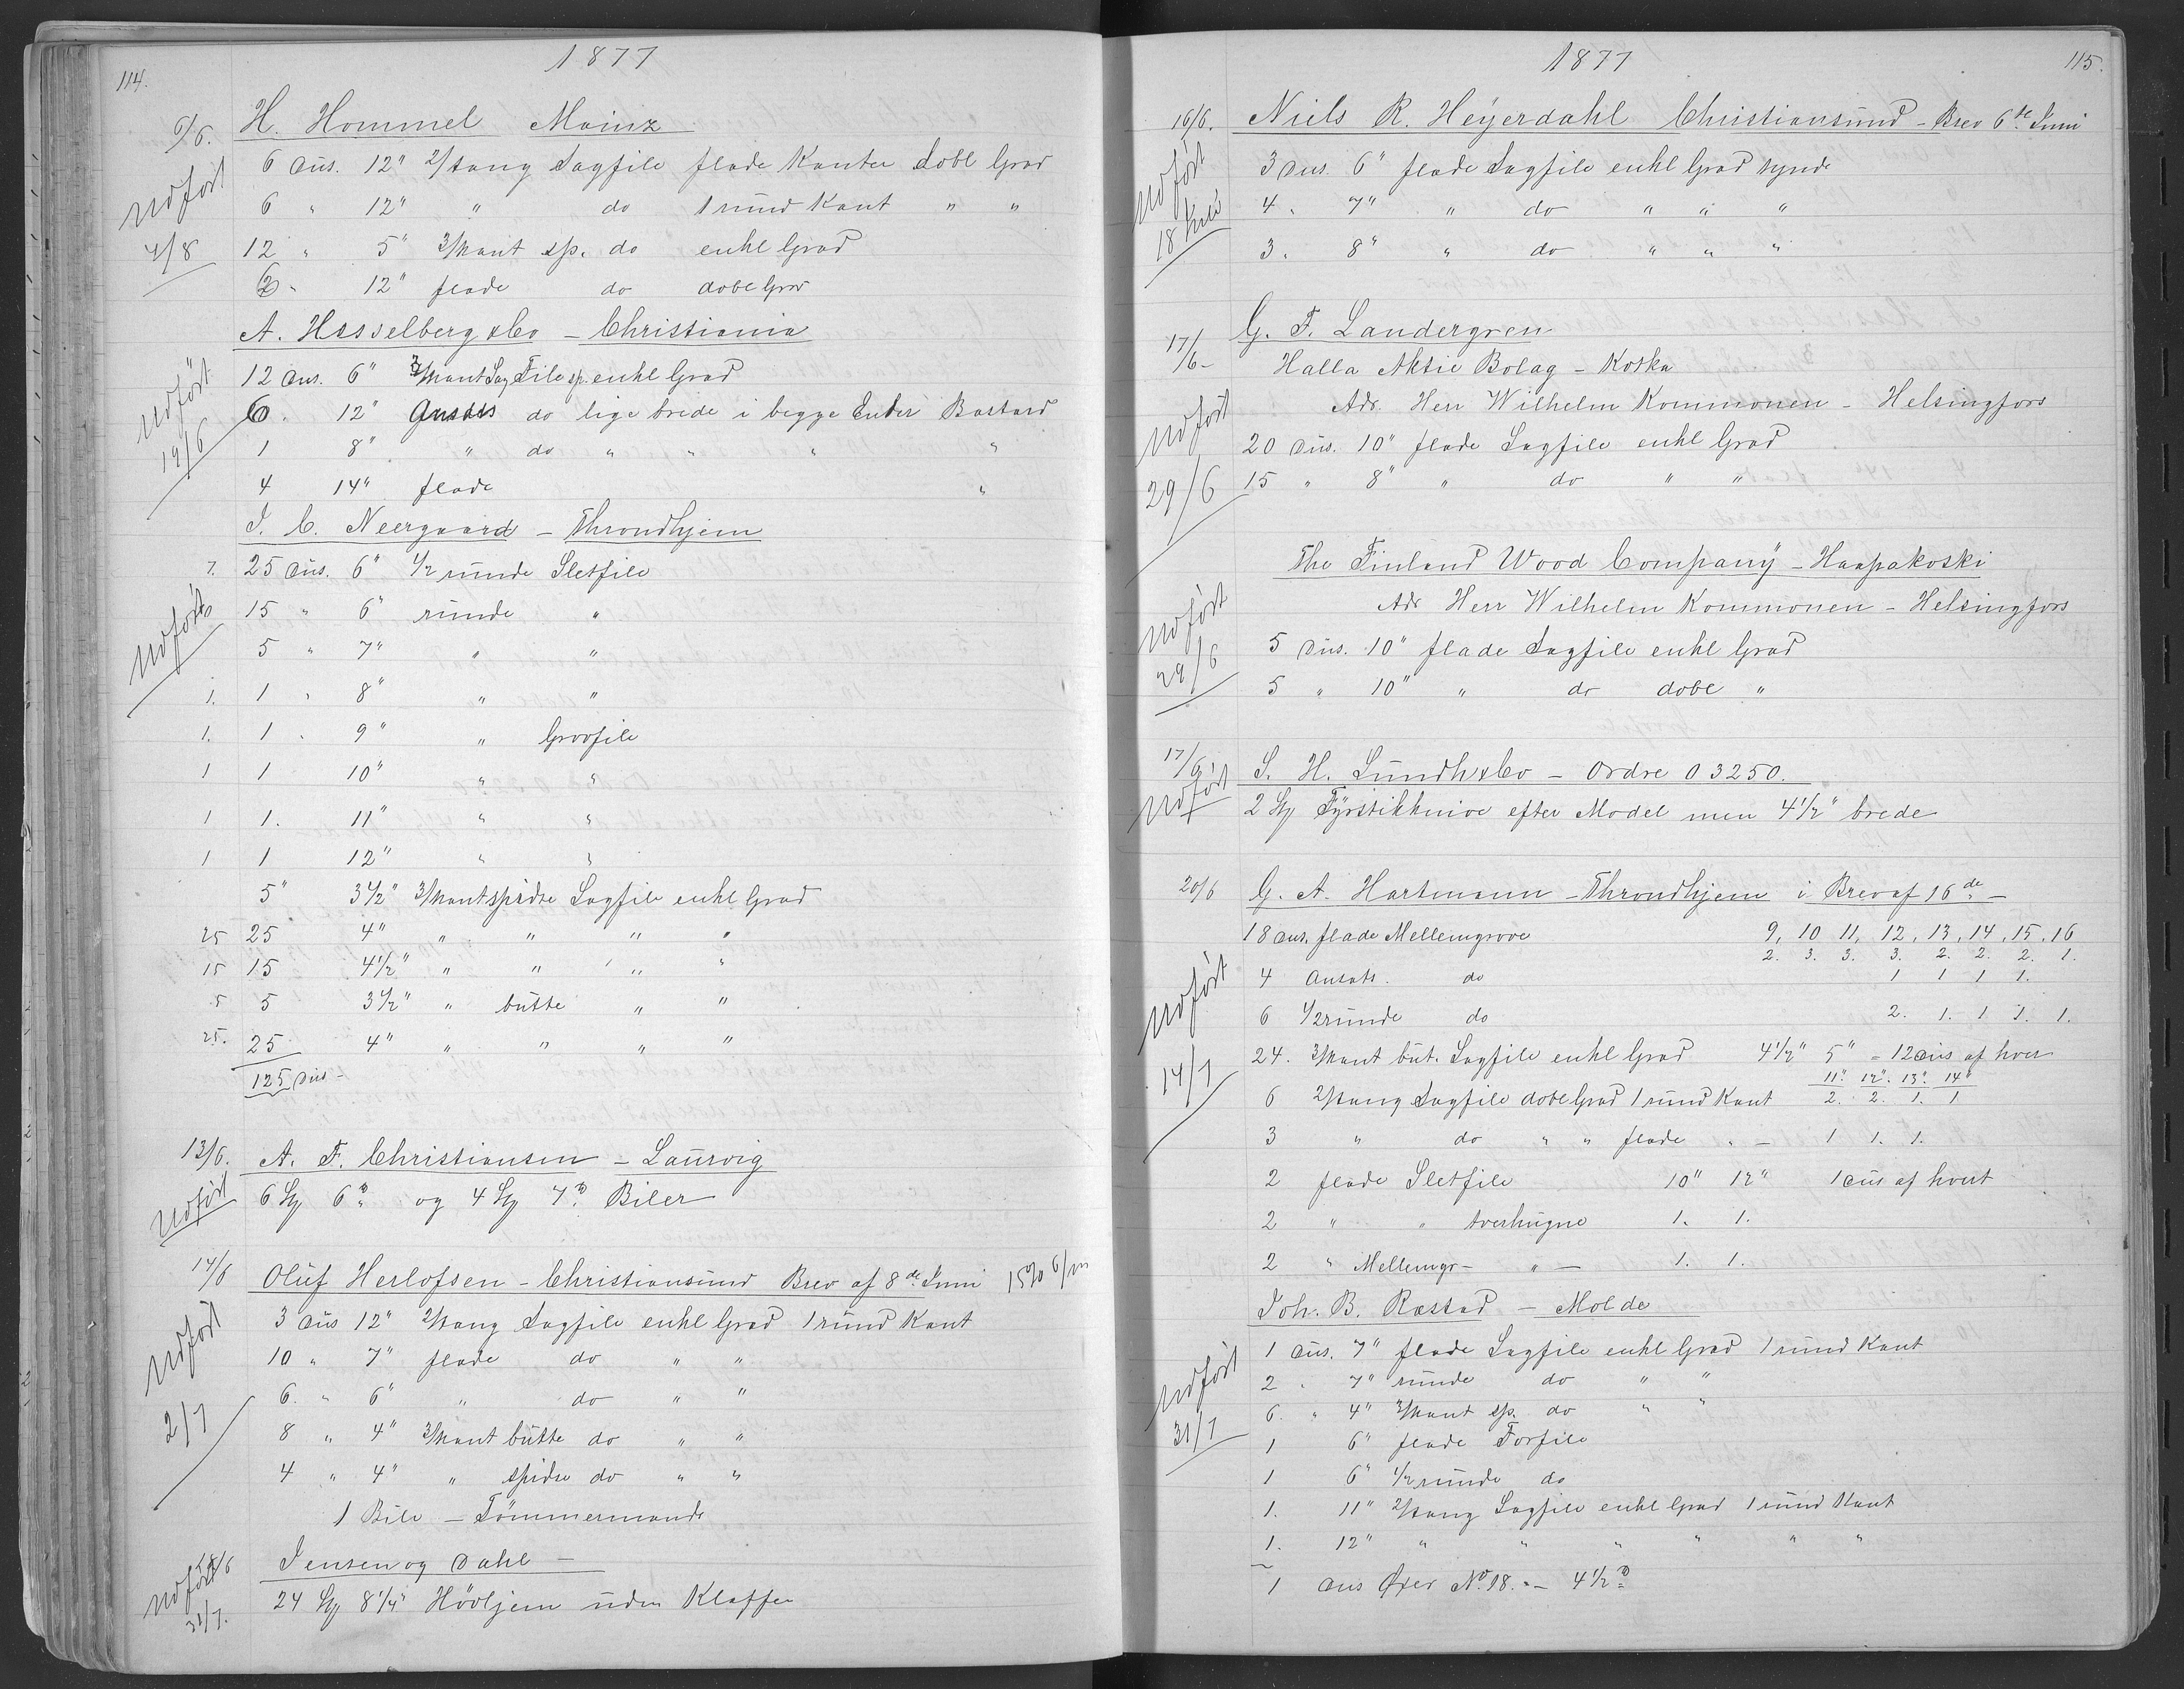 114.
1877
9/6. H. Hommel Mainz
6 Dus. 12" 2/tang Sagfile flade Kanter dobl Grad
Udført 6 " 12" " do 1 rund Kant " "
4/8 12 " 5" 3/kant sp. do enkl Grad
12" flade do dobl Grad
A. Hesselberg & Co – Christiania
12 Dus. 6" 3/kant Sag File sp. enkl Grad
Udført 6 . 12" Ansats do lige brede i begge Ender Bastard
19/6 1 8" " do " " " "
4 14" flade "
I. C. Neergaard – Throndhjem
7. 25 Dus. 6" 1/2 runde Sletfile
Udført 15 " 6" runde "
5 " 7" " "
1. 1 " 8" " "
1. 1 . 9" " Grovfile
1 1 10" " "
1 1. 11" " "
1 1 12" " "
5" 3 1/2" 3/kant spidse Sagfile enkl Grad
25 25 4" " " " "
15 15 4 1/2" " " " "
5 5 3 1/2" " butte " "
25. 25 4" " " " "
125 Dus –
13/6. A. F. Christiansen – Laurvig
Udført 6 Stk 6" og 4 Stk 7" Biler
14/6 Oluf Herlofsen – Christiansund Brev af 8de Juni 15% 6/m
3 Dus 12" 2/tang Sagfile enkl Grad 1 rund Kant
Udført 10 " 7" flade do " "
6. " 6" " do " "
2/7 8 " 4" 3/kant butte do " "
4 " 4" " spidse do " "
1 Bile – Tømmermands
18/6 Jensen og Dahl –
Udført 31/7. 24 Stk 8 1/4" Hövljern uden Klaffer
1877
115.
16/6. Niels R. Heyerdahl Christiansund – Brev 6te Juni
3 Dus. 6" flade Sagfile enkl Grad tynde
Udført 4 . 7" " do " " "
18 Juli 3 . 8" " do " " "
17/6 – G. F. Landergren
Halla Aktie Bolag – Kotka
Adr. Herr Wilhelm Kommonen – Helsingfors
Udført 20 Dus. 10" flade Sagfile enkl Grad
29/6 15 " 8" " do " "
The Finland Wood Company – Haapakoski
Adr Herr Wilhelm Kommonen – Helsingfors
Udført 5 Dus. 10" flade Sagfile enkl Grad
29/6 5 " 10" " do dobl "
17/6 S. H. Lundh & Co – Ordre O 3250.
Udført 2 Stk Fyrstikknive efter Model men 4 1/2" brede
20/6 G. A. Hartmann – Throndhjem i Brev af 16de –
18 Dus. flade Mellemgrove 9, 10 11, 12, 13, 14, 15. 16
2. 3. 3. 3. 2. 2. 2. 1.
Udført 4 Ansats. do 1 1 1 1.
6 1/2 runde do 2. 1. 1 1. 1.
24. 3/kant but. Sagfile enkl Grad 4 1/2" 5" = 12 Dus af hver
14/7 11" 12". 13". 14"
6 2/tang Sagfile dobl Grad 1 rund Kant 2. 2. 1. 1
3 " do " " flade " – 1 1. 1.
2 flade Sletfile 10" 12" 1 Dus af hvert
2 " " tverhugne 1. 1.
2 " Mellemgr– " – 1. 1.
Joh. B. Røstad – Molde
1 Dus. 7" flade Sagfile enkl Grad 1 rund Kant
Udført 2 . 7" runde do " "
31/7 6. " 4" 3/kant sp. do " "
1 6" flade Forfile
1 6" 1/2 runde do
1. 11" 2/tang Sagfile enkl Grad 1 rund Kant
1. 12" " " " " " "
1 Dus Øxer No 18. – 4 1/2"